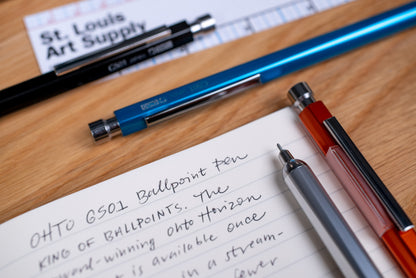 St. Louis
Art Supply
OHTO GS01 Ballpoint Pen
KING OF BALLPOINTS. The
award-winning OHTO Horizon
is available once
in a stream-